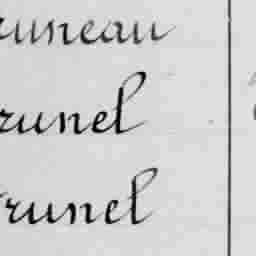 runeau
runel
runel